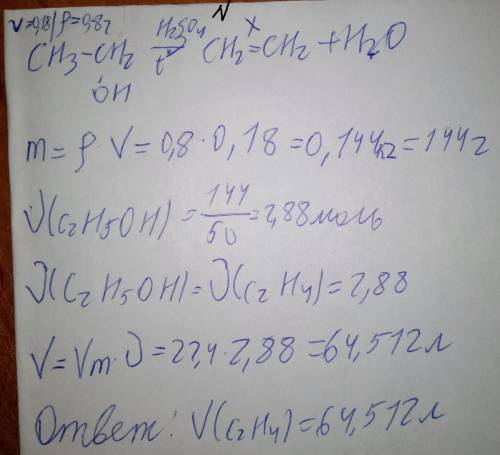 V=0,18 ρ=0,8г
CH₃-CH₂ →(H₂SO₄, t°) CH₂=CH₂+H₂O
OH
m=ρ·V=0,8·0,18=0,144кг=144г
ν(C₂H₅OH)=144/50=2,88моль
ν(C₂H₅OH)=ν(C₂H₄)=2,88
V=Vm·ν=22,4·2,88=64,512л
Ответ: V(C₂H₄)=64,512л